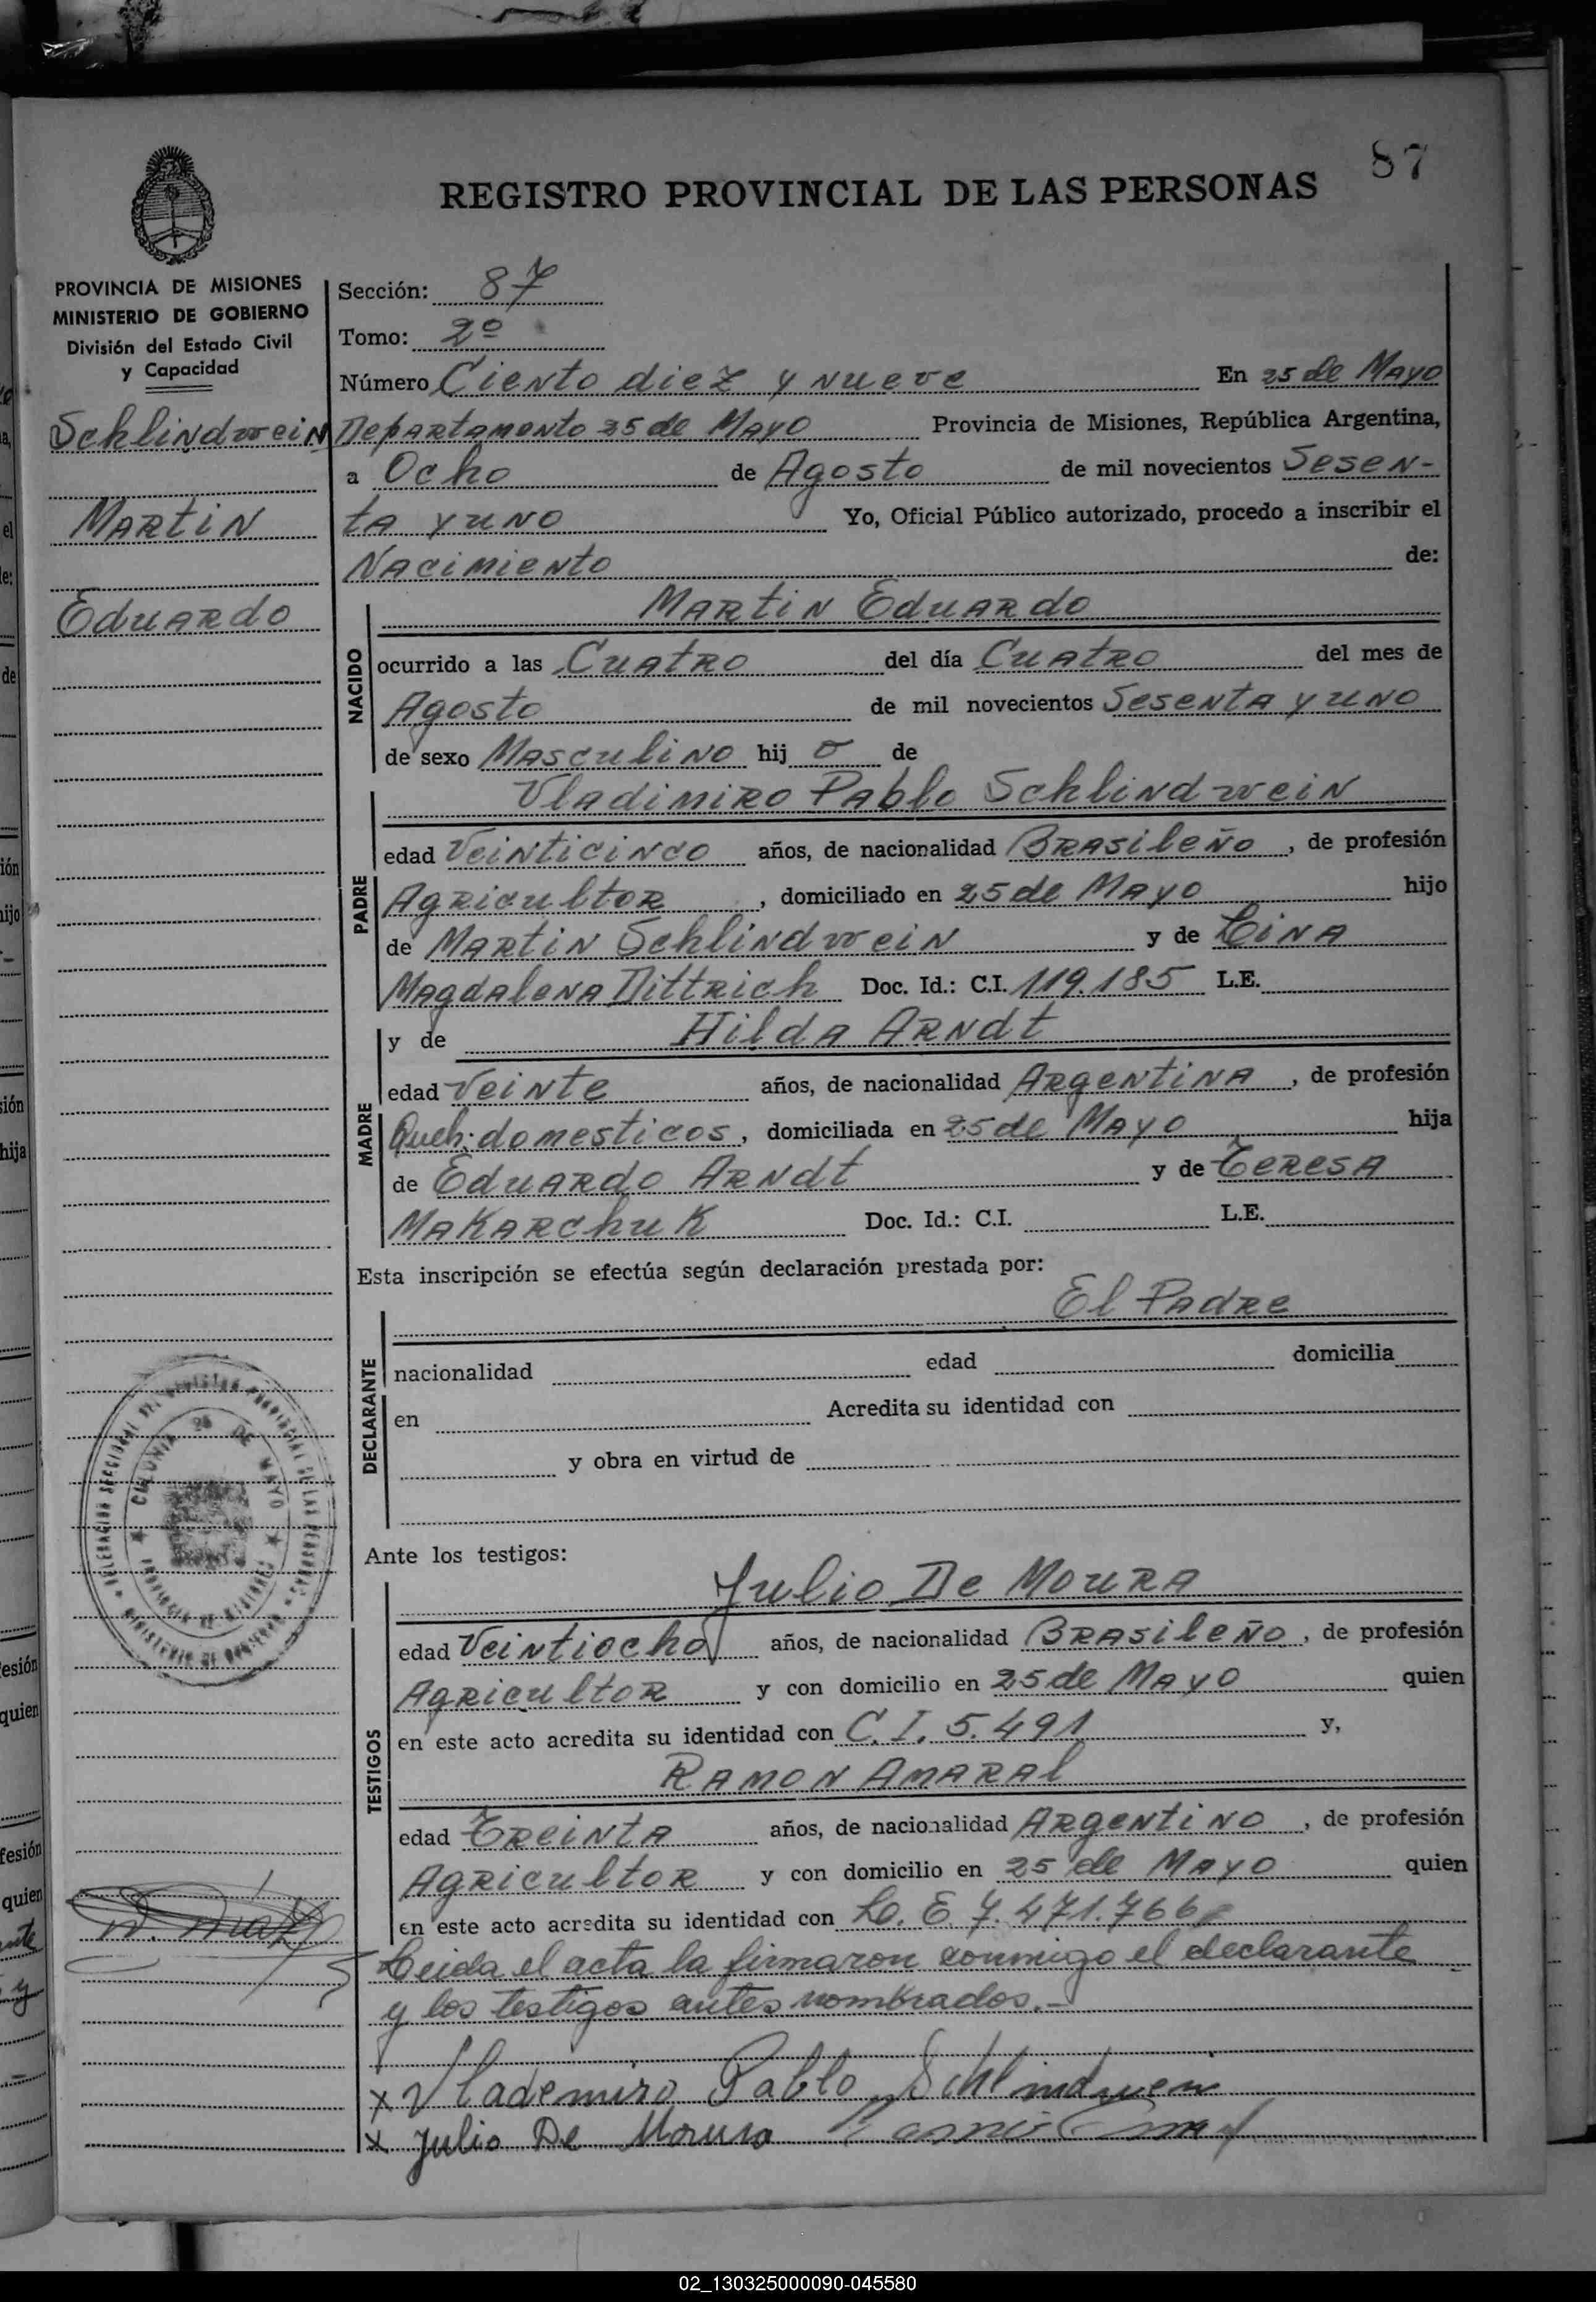 87
REGISTRO PROVINCIAL DE LAS PERSONAS
PROVINCIA DE MISIONES
MINISTERIO DE GOBIERNO
División del Estado Civil
y Capacidad
Schlindwein
Martin
Eduardo
Sección: 87
Tomo: 2º
Número Ciento diez y nueve En 25 de Mayo
Departamento 25 de Mayo Provincia de Misiones, República Argentina,
a Ocho de Agosto de mil novecientos Sesen-
ta y uno Yo, Oficial Público autorizado, procedo a inscribir el
Nacimiento de:
NACIDO
Martin Eduardo
ocurrido a las Cuatro del día Cuatro del mes de
Agosto de mil novecientos Sesenta y uno
de sexo Masculino hijo de
PADRE
Vladimiro Pablo Schlindwein
edad Veinticinco años, de nacionalidad Brasileño, de profesión
Agricultor, domiciliado en 25 de Mayo hijo
de Martin Schlindwein y de Lina
Magdalena Dittrich Doc. Id.: C.I. 119.185 L.E.
MADRE
y de Hilda Arndt
edad Veinte años, de nacionalidad Argentina, de profesión
Queh. domesticos, domiciliada en 25 de Mayo hija
de Eduardo Arndt y de Teresa
Makarchuk Doc. Id.: C.I. L.E.
Esta inscripción se efectúa según declaración prestada por:
DECLARANTE
El Padre
nacionalidad edad domicilia
en Acredita su identidad con
y obra en virtud de
COLONIA 25 DE MAYO
PROVINCIA DE MISIONES
Ante los testigos:
TESTIGOS
Julio De Moura
edad Veintiocho años, de nacionalidad Brasileño, de profesión
Agricultor y con domicilio en 25 de Mayo quien
en este acto acredita su identidad con C.I. 5.491 y,
Ramon Amaral
edad Treinta años, de nacionalidad Argentino, de profesión
Agricultor y con domicilio en 25 de Mayo quien
en este acto acredita su identidad con L.E. 7.471.766
Leida el acta la firmaron conmigo el declarante
y los testigos antes nombrados.-
x Vlademiro Pablo Schlindwein
x Julio De Moura
02_130325000090-045580